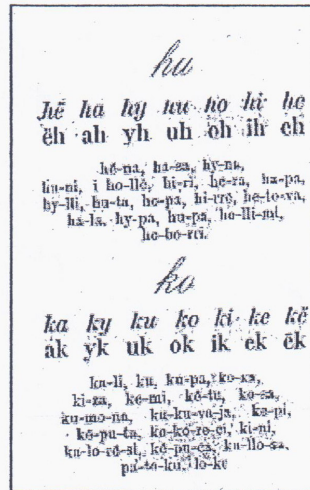 hu
hë ha hy hu ho hi he
ëh ah yh uh oh ih eh
hë-na, ha-za, hy-nu,
hu-ni, i ho-llë, hi-ri, he-ra, ha-pa,
hy-lli, hu-ta, he-pa, hi-rrë, he-to-va,
ha-la, hy-pa, hu-pa, he-lli-mi,
ko
ka ky ku ko ki ke kë
ak yk uk ok ik ek ëk
ka-li, ku, ku-pa, ko-sa,
ki-za, ke-mi, kë-tu, ko-sa,
ku-mo-na, ku-ku-va-ja, ke-pi,
kë-pu-ta, ko-ko-re-ci, ki-ni,
ka-lo-rë-si, kë-pu-ca, ka-llo-sa,
pa-ta-ku, lo-ke